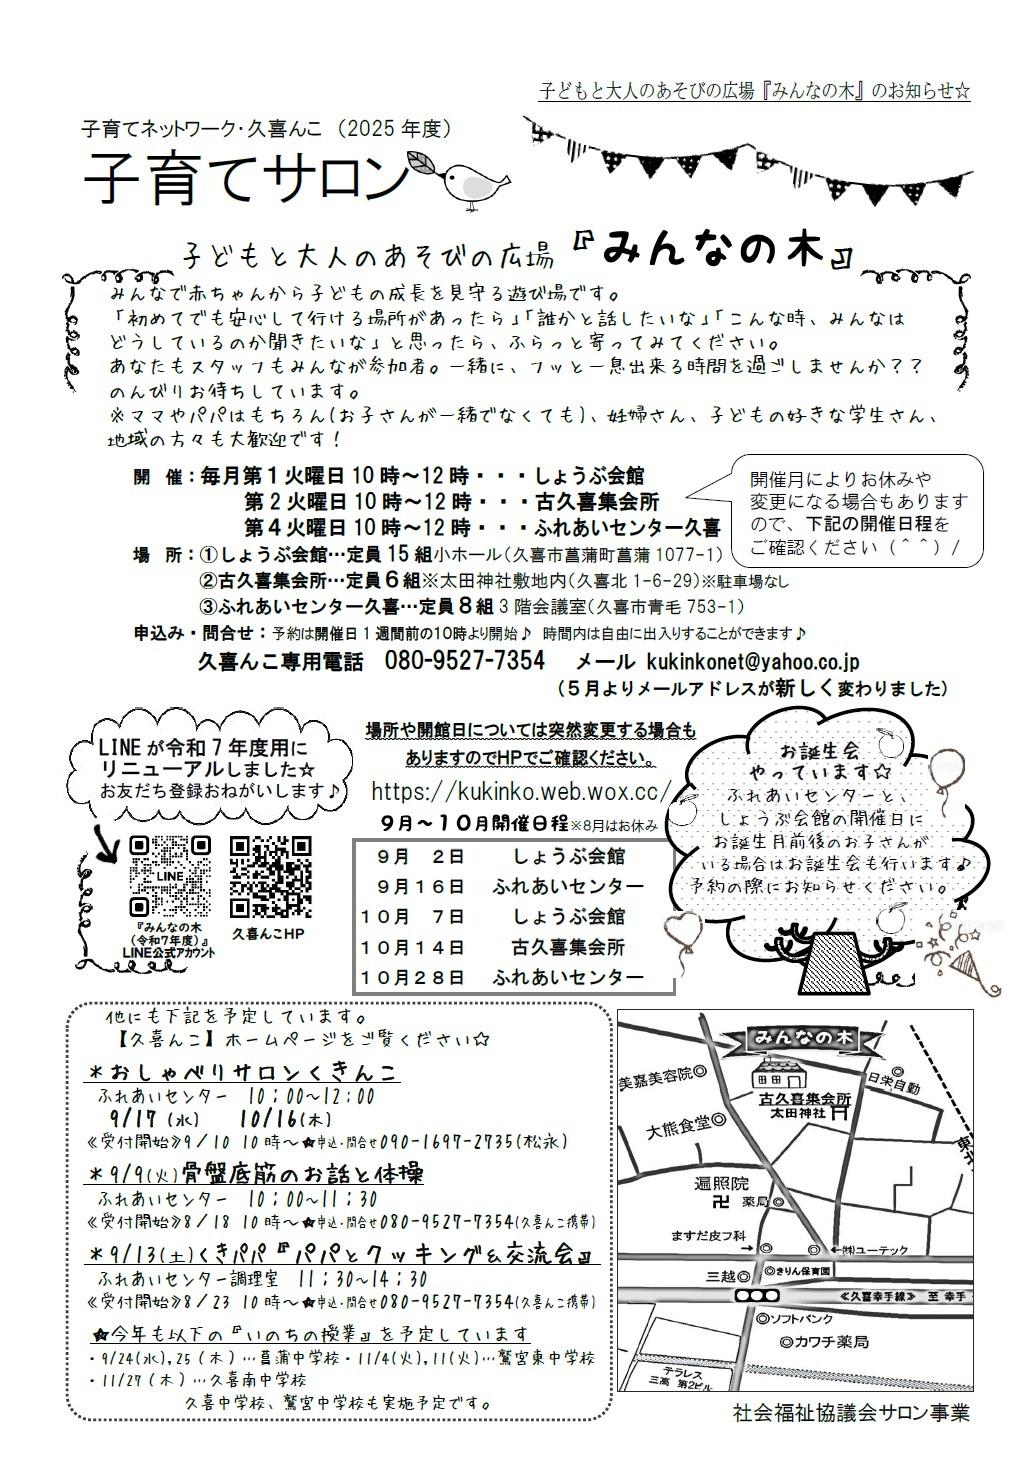 子どもと大人のあそびの広場『みんなの木』のお知らせ☆
子育てネットワーク・久喜んこ （2025 年度）
子育てサロン
子どもと大人のあそびの広場『みんなの木』
みんなで赤ちゃんから子どもの成長を見守る遊び場です。
「初めてでも安心して行ける場所があったら」「誰かと話したいな」「こんな時、みんなは
どうしているのか聞きたいな」と思ったら、ふらっと寄ってみてください。
あなたもスタッフもみんなが参加者。一緒に、フッと一息出来る時間を過ごしませんか？？
のんびりお待ちしています。
※ママやパパはもちろん(お子さんが一緒でなくても)、妊婦さん、子どもの好きな学生さん、
地域の方々も大歓迎です！
開　催：毎月第１火曜日 10 時～12 時・・・しょうぶ会館
第２火曜日 10 時～12 時・・・古久喜集会所
第４火曜日 10 時～12 時・・・ふれあいセンター久喜
開催月によりお休みや
変更になる場合もあります
ので、下記の開催日程を
ご確認ください（＾＾）/
場　所：①しょうぶ会館…定員 15 組小ホール（久喜市菖蒲町菖蒲 1077-1）
②古久喜集会所…定員６組※太田神社敷地内（久喜北 1-6-29）※駐車場なし
③ふれあいセンター久喜…定員８組 3 階会議室（久喜市青毛 753-1）
申込み・問合せ：予約は開催日１週間前の10時より開始♪ 時間内は自由に出入りすることができます♪
久喜んこ専用電話　080-9527-7354　メール kukinkonet@yahoo.co.jp
（５月よりメールアドレスが新しく変わりました）
LINE が令和７年度用に
リニューアルしました☆
お友だち登録おねがいします♪
LINE
『みんなの木
（令和7年度）』
LINE公式アカウント
久喜んこHP
場所や開館日については突然変更する場合も
ありますのでHPでご確認ください。
https://kukinko.web.wox.cc/
９月～１０月開催日程※8月はお休み
９月　２日　しょうぶ会館
９月１６日　ふれあいセンター
１０月　７日　しょうぶ会館
１０月１４日　古久喜集会所
１０月２８日　ふれあいセンター
お誕生会
やっています☆
ふれあいセンターと、
しょうぶ会館の開催日に
お誕生月前後のお子さんが
いる場合はお誕生会も行います♪
予約の際にお知らせください。
他にも下記を予定しています。
【久喜んこ】ホームページをご覧ください☆
＊おしゃべりサロンくきんこ
ふれあいセンター　10：00～12：00
9/17（水）　10/16（木）
《受付開始》9／10 10 時～★申込・問合せ090-1697-2735(松永)
＊9/9(火)骨盤底筋のお話と体操
ふれあいセンター　10：00～11：30
《受付開始》8／18 10 時～★申込・問合せ080-9527-7354(久喜んこ携帯)
＊9/13(土)くきパパ『パパとクッキング&交流会』
ふれあいセンター調理室　11：30～14：30
《受付開始》8／23 10 時～★申込・問合せ080-9527-7354(久喜んこ携帯)
★今年も以下の『いのちの授業』を予定しています
・9/24(水),25（木）…菖蒲中学校・11/4(火),11(火)…鷲宮東中学校
・11/27（木）…久喜南中学校
久喜中学校、鷲宮中学校も実施予定です。
みんなの木
美嘉美容院◎
古久喜集会所
太田神社
日栄自動
大熊食堂◎
東北
遍照院
卍 薬局◎
ますだ皮フ科
→◎
◎←㈱ユーテック
三越◎
◎きりん保育園
≪久喜幸手線≫ 至 幸手
◎ソフトバンク
◎カワチ薬局
テラレス
三高 第2ビル
社会福祉協議会サロン事業